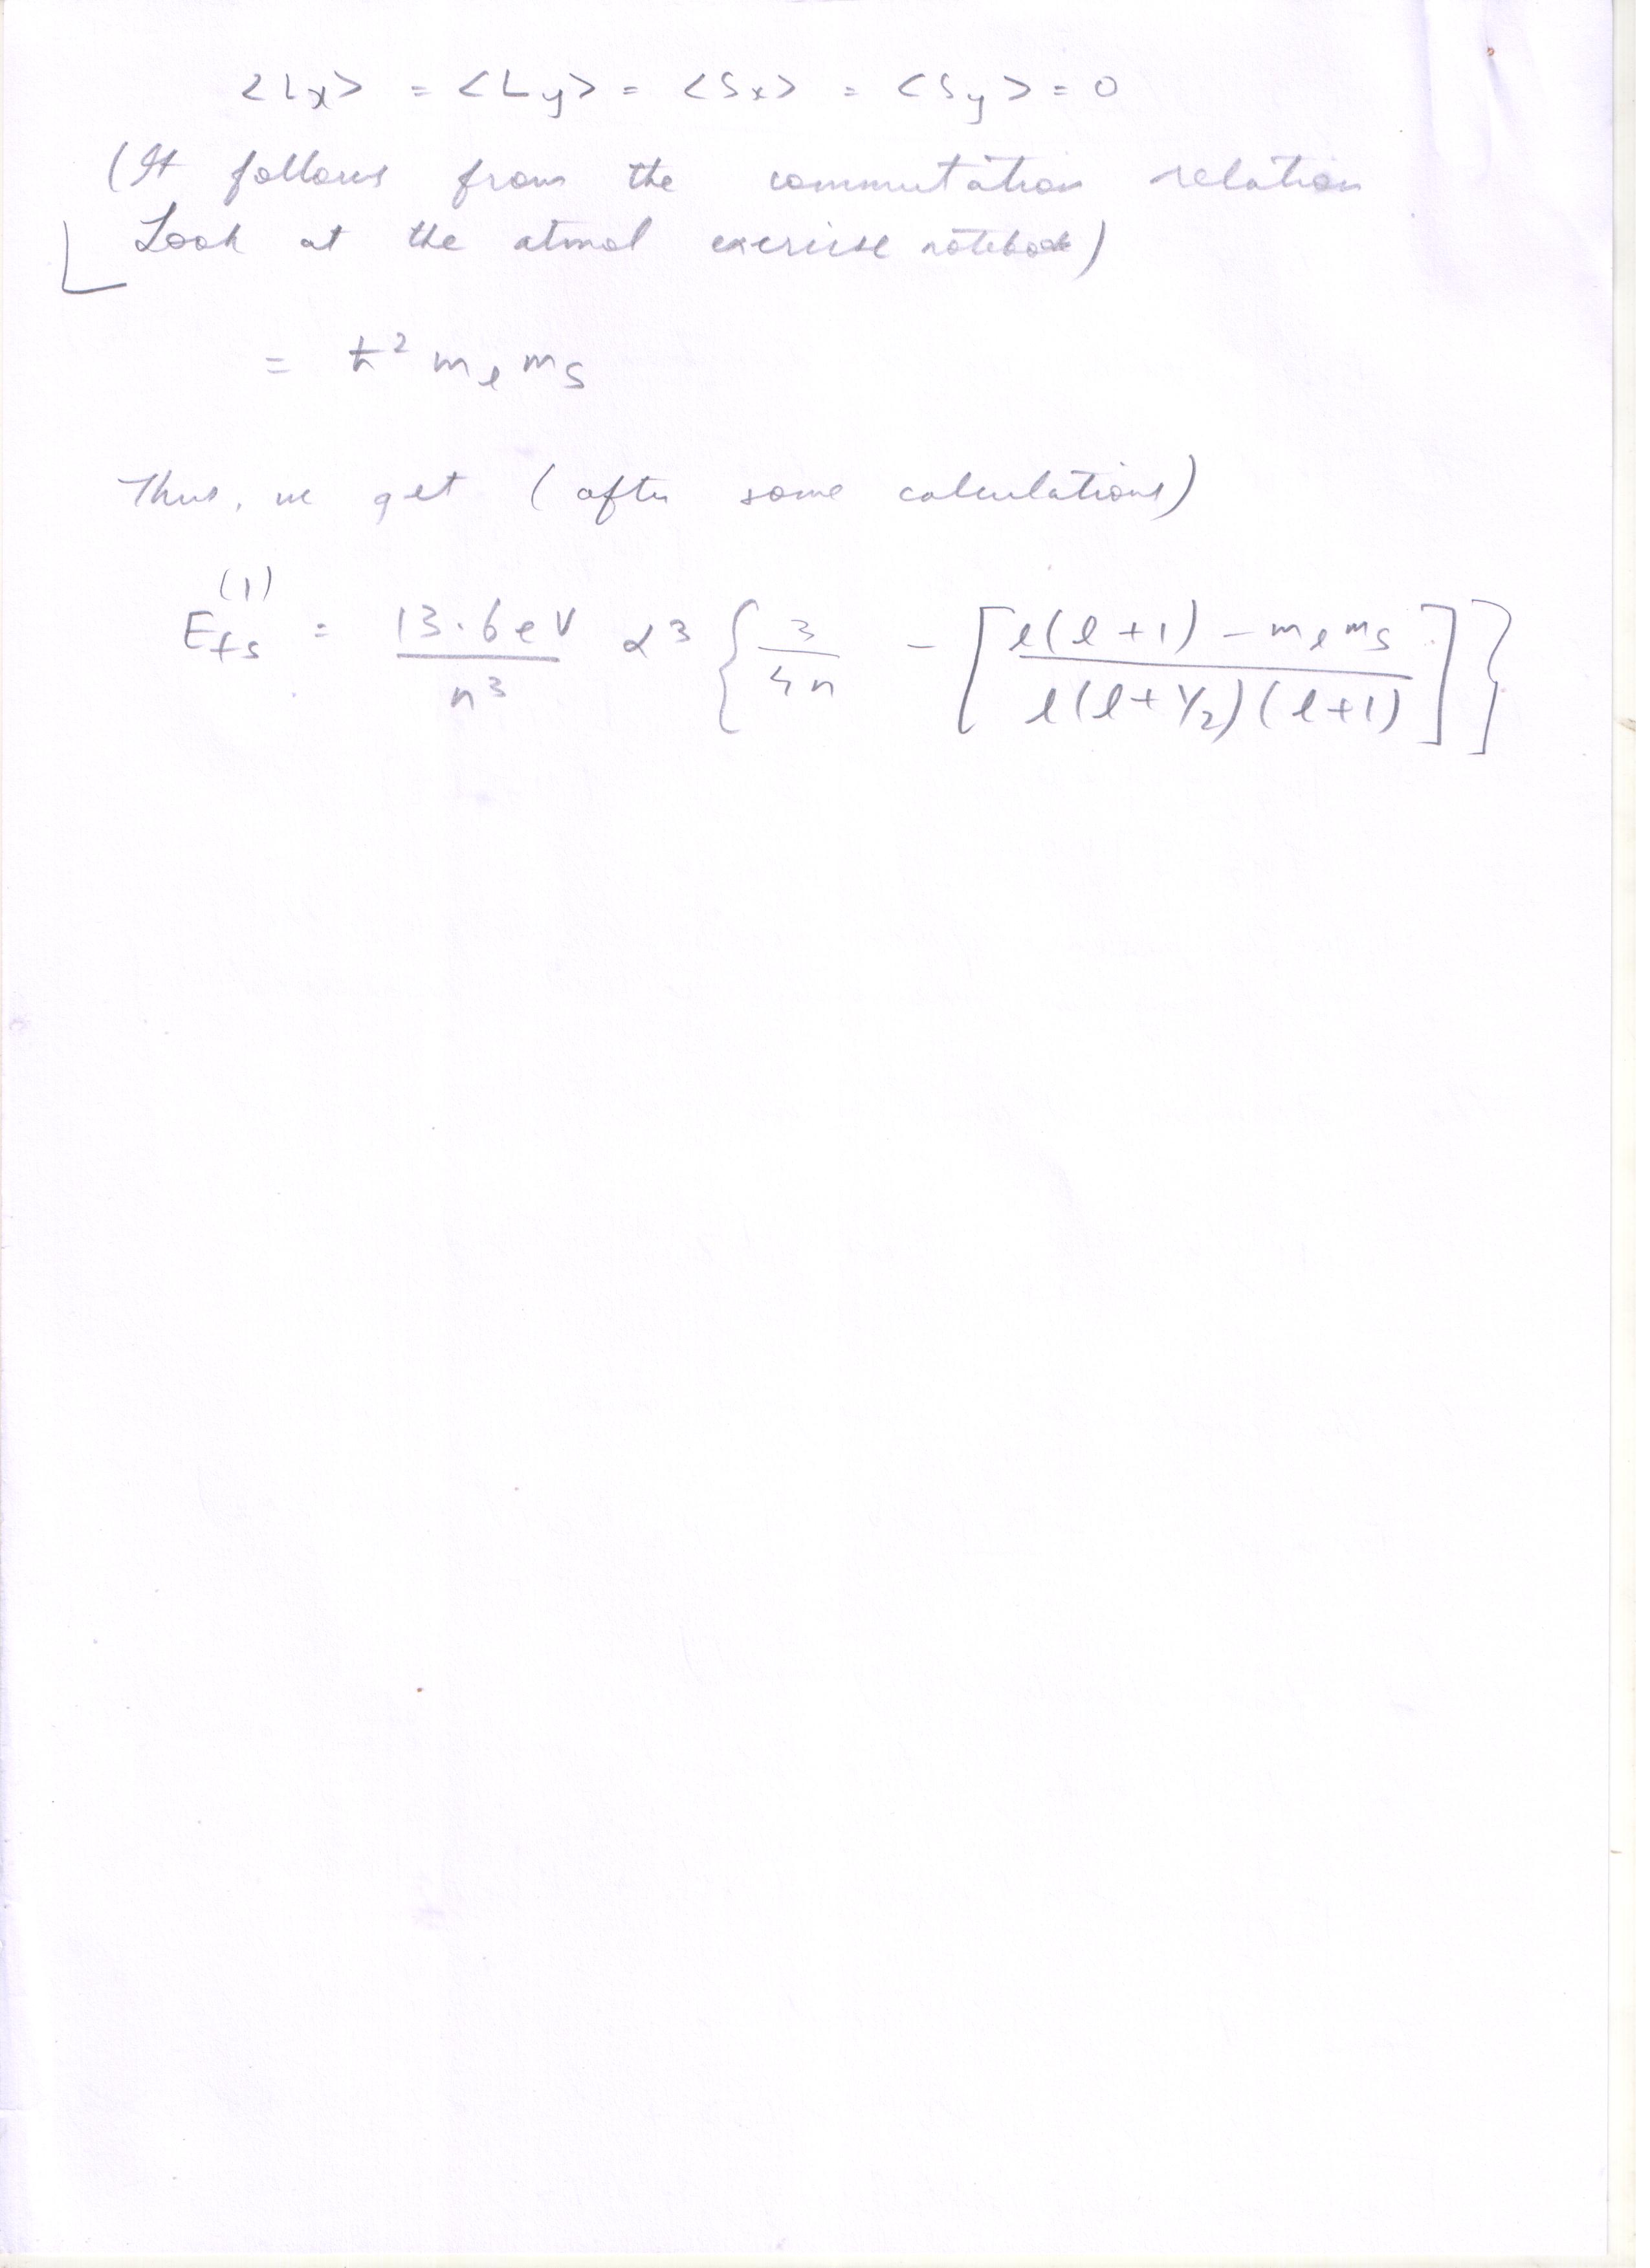 <Lx> = <Ly> = <Sx> = <Sy> = 0
(It follows from the commutation relation
Look at the exercise notebook)
= ħ² mₗ mₛ
Thus, we get (after some calculations)
E_fs^(1) = 13.6 eV / n³ α³ { 3 / 4n − [ l(l+1) − mₗ mₛ / l(l+1/2)(l+1) ] }